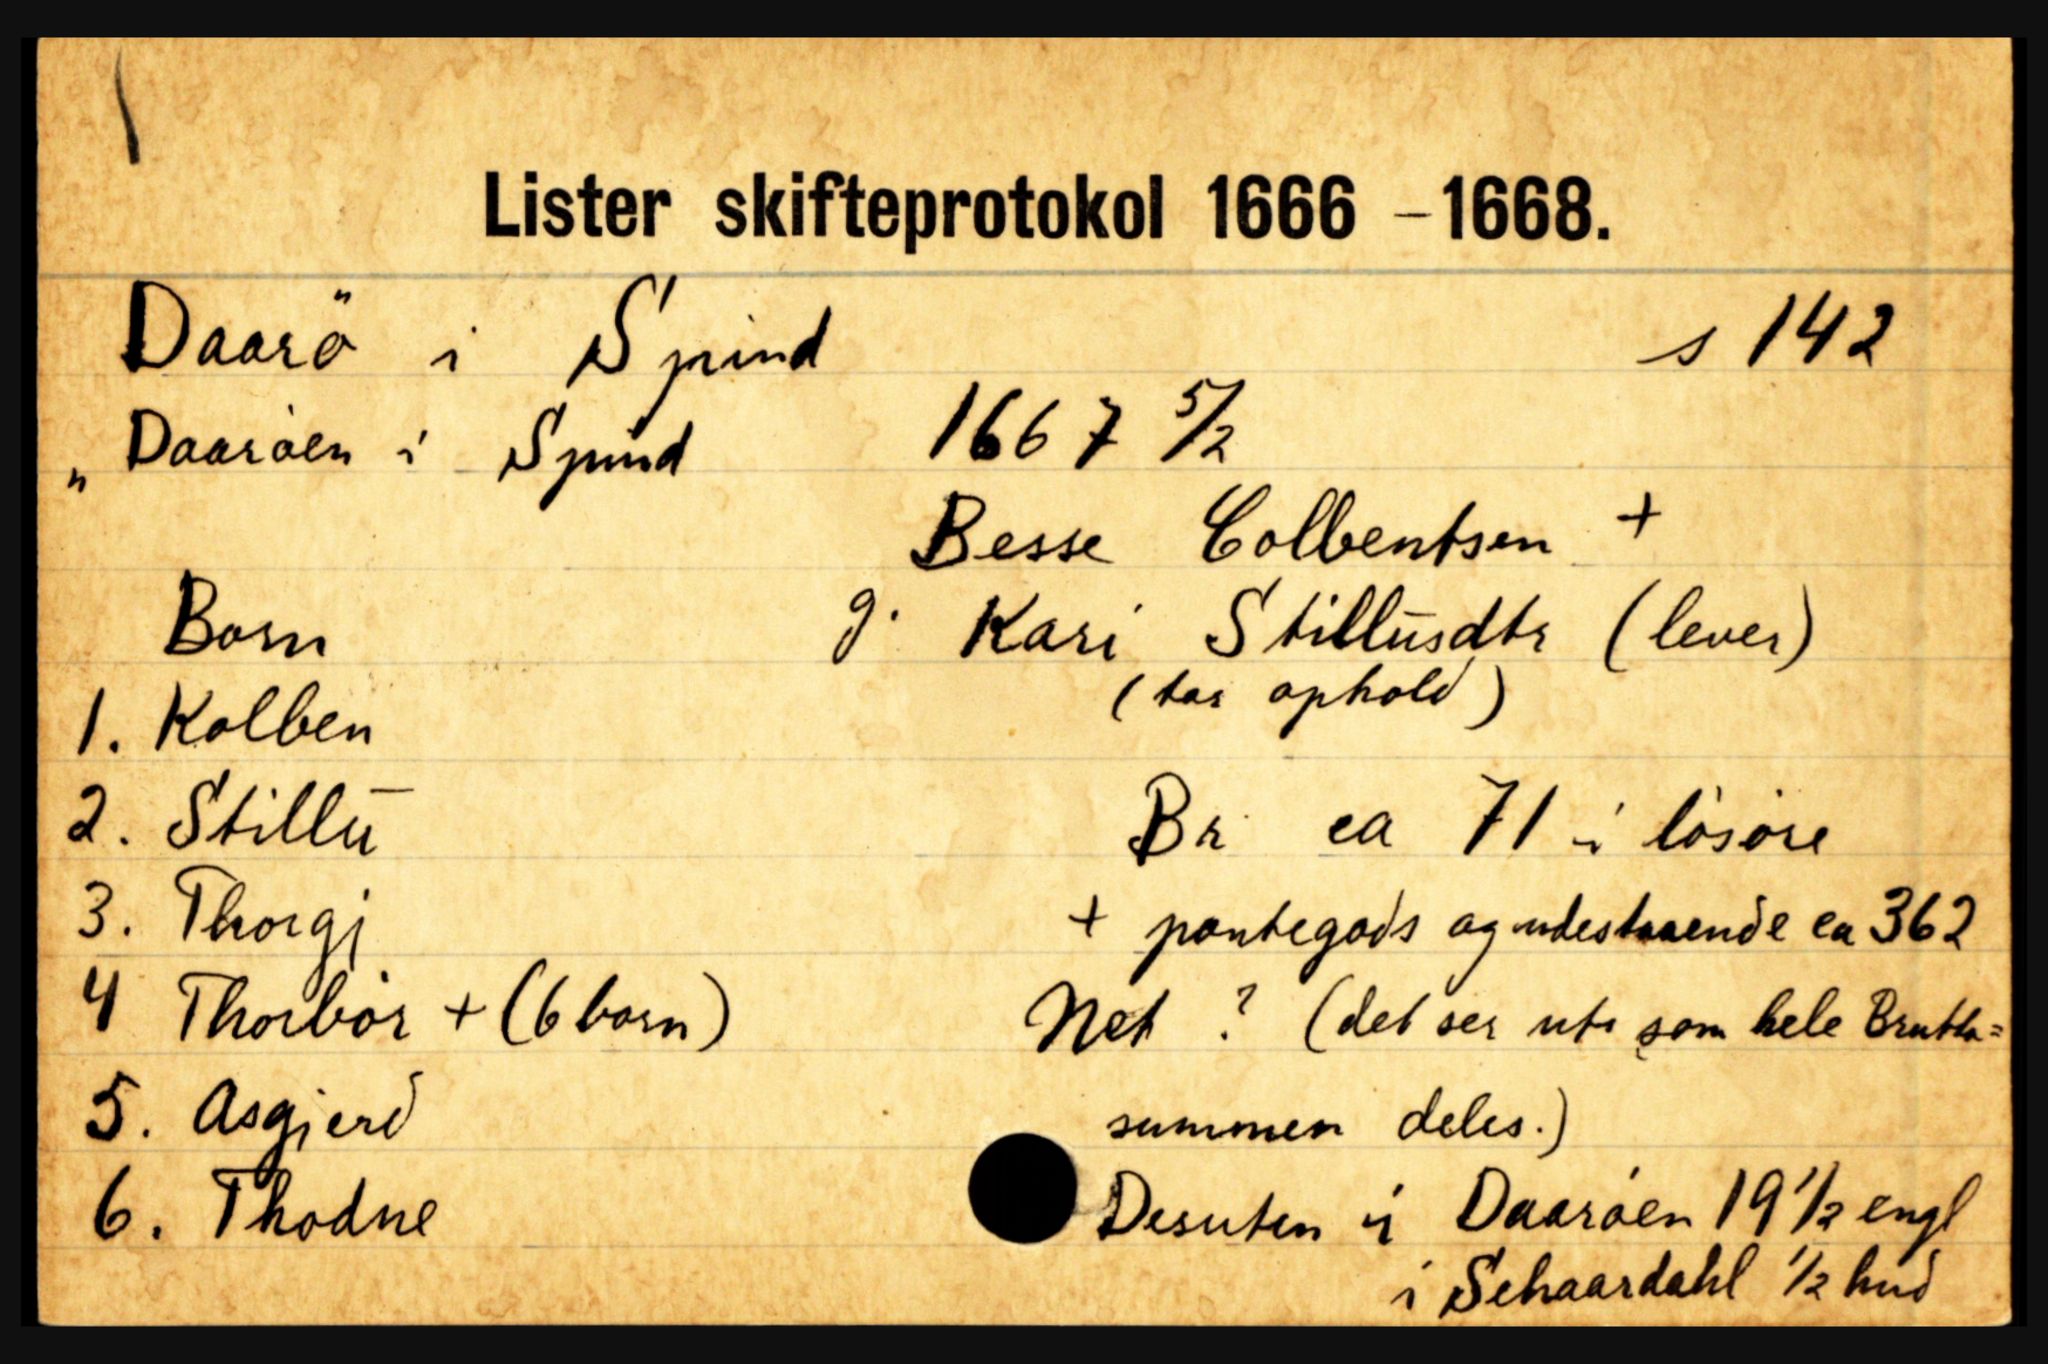 Lister skifteprotokol 1666 – 1668.
Daarö i Spind s 142
„ Daaröen i Spind 1667 5/2
Besse Colbentsen +
Born g. Kari Stillūsdtr (lever)
(tar ophold)
1. Kolben
2. Stillū Br ca 71 i lösöre
3. Thorgj + pantegods og udestaaende ca 362
4 Thorbör + (6 born) Net ? (det ser ut som hele Brutto=
5. Asgjerd summen deles.)
6. Thodne Desuten i Daaröen 19 1/2 engl
i Schaardahl 1/2 hud